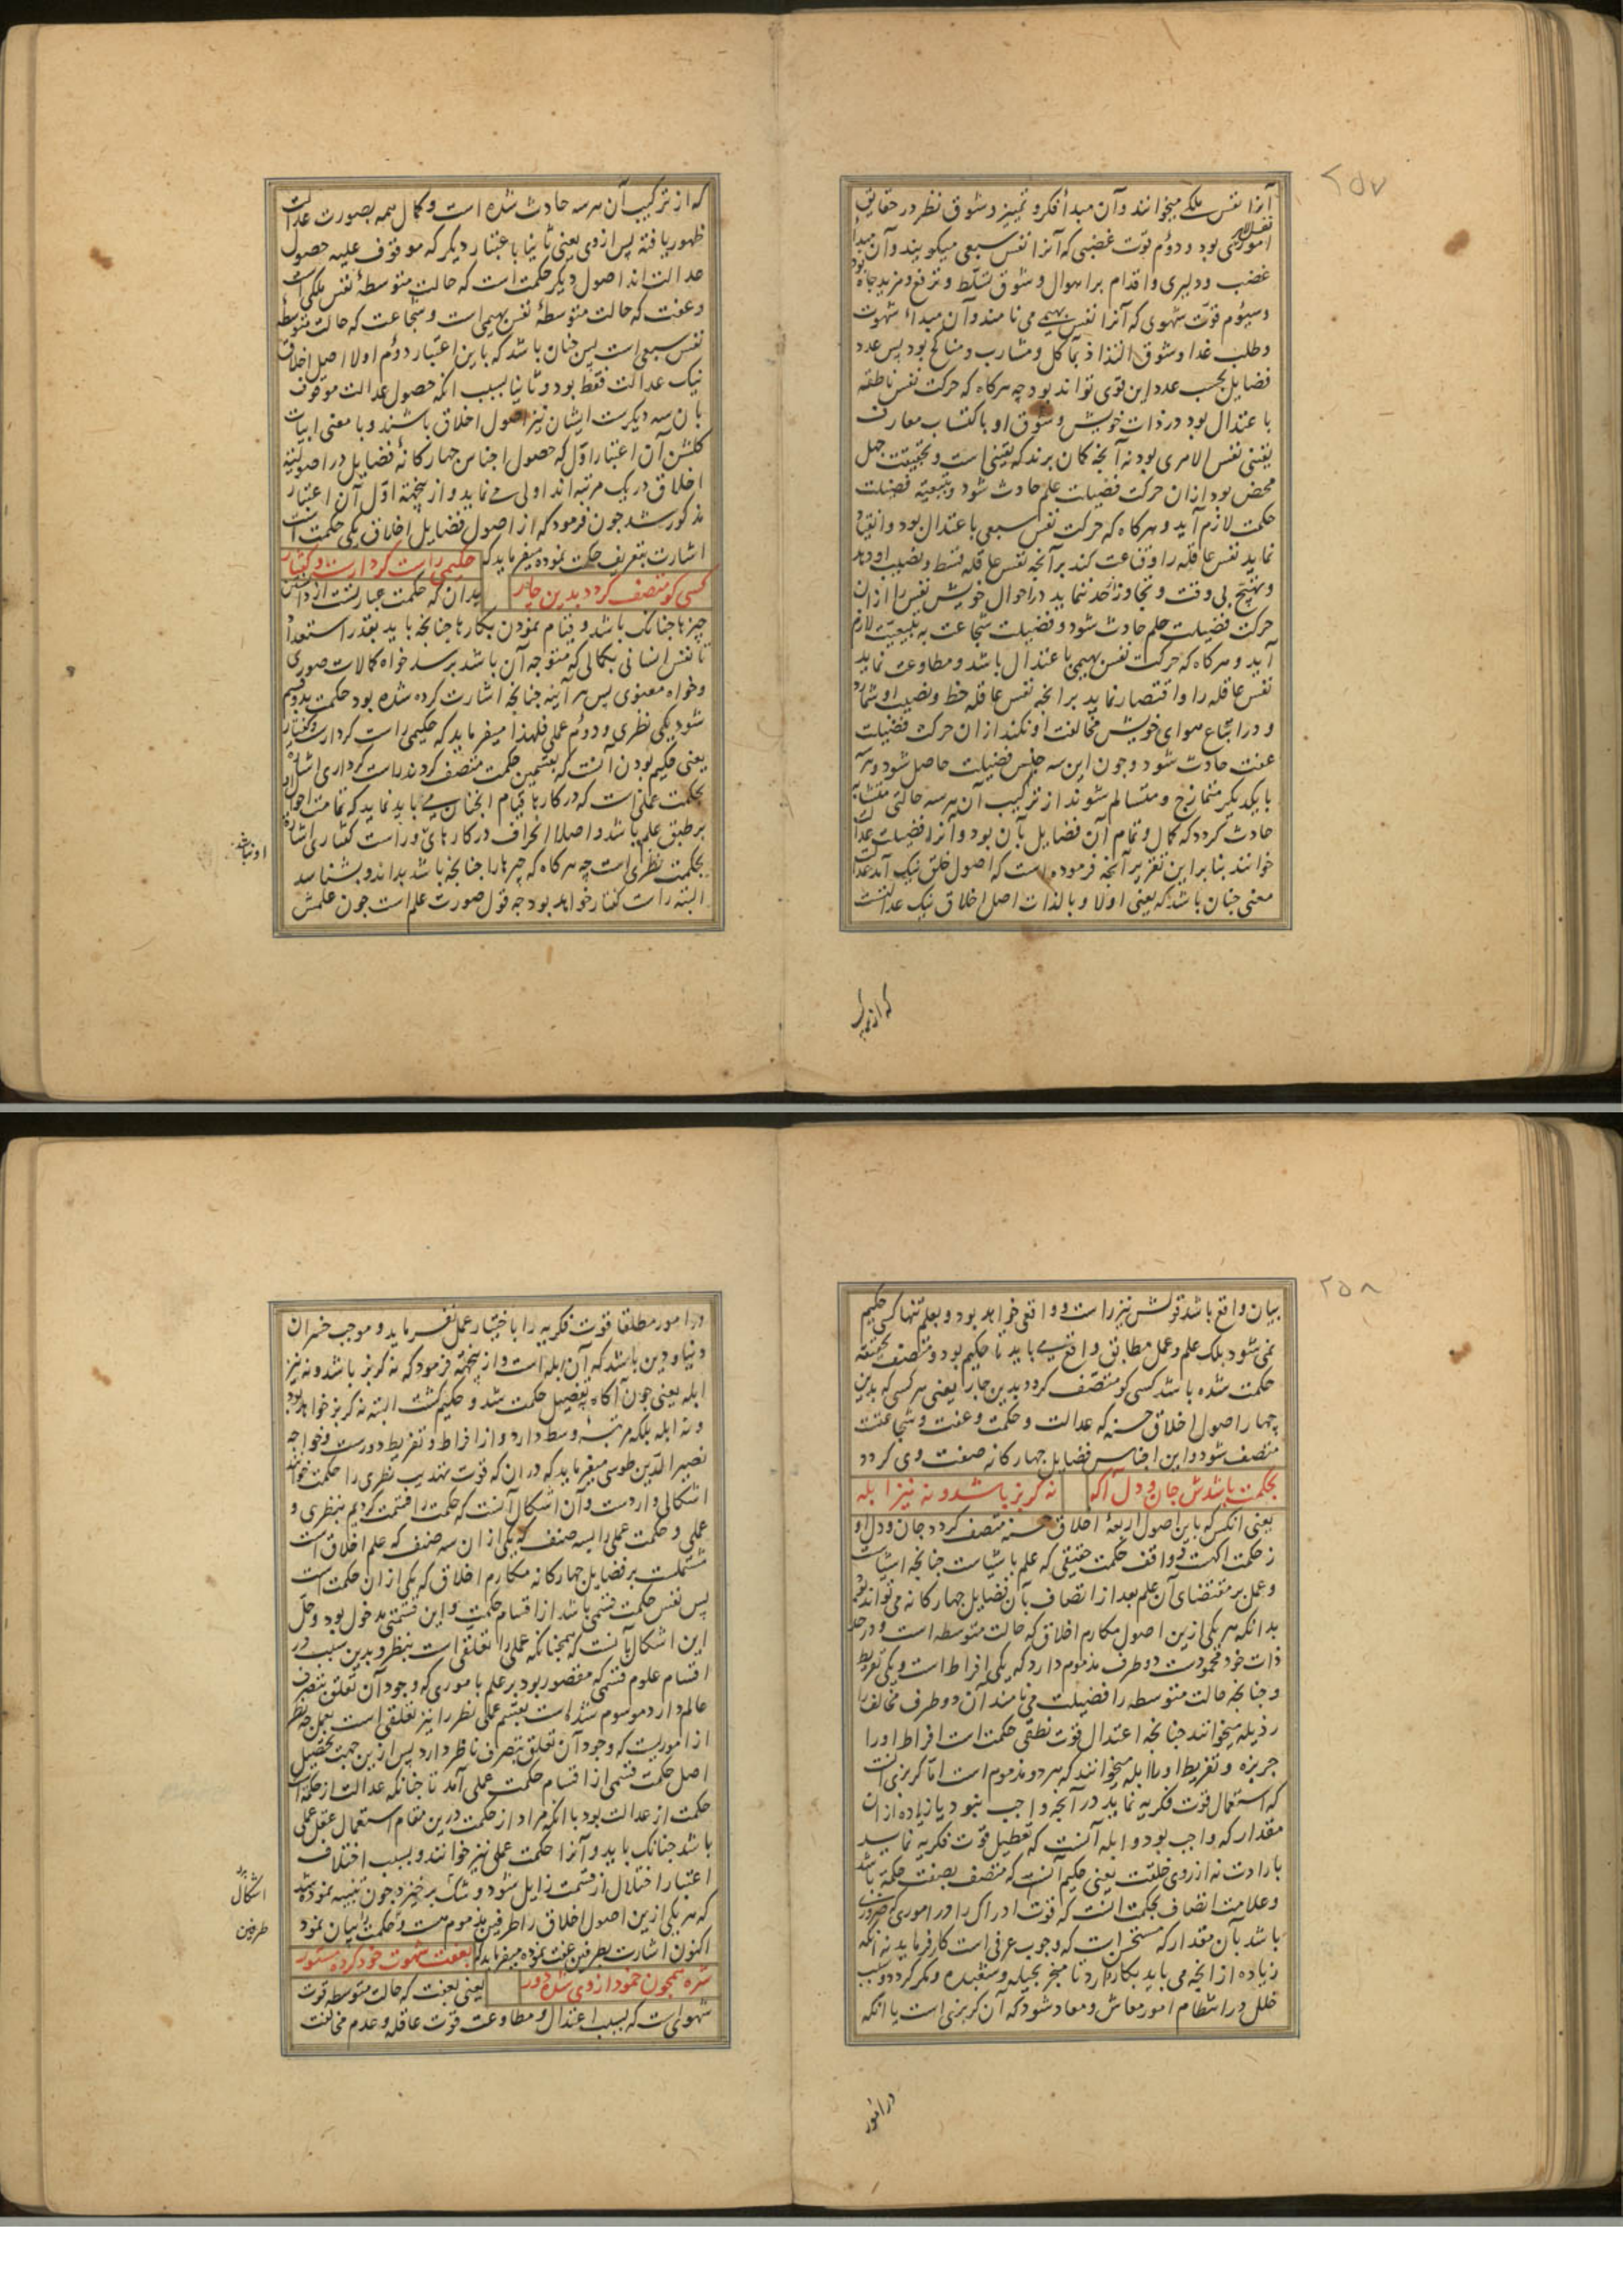 ۲۵۷
آنرا نفس ملکی میخوانند و آن مبدأ فکر و تمییز و شوق نظر در حقایق
امور بود و دوم قوت غضبی که آنرا نفس سبعی میکویند و آن مبدأ
غضب و دلیری و اقدام بر اهوال و شوق تسلط و ترفع و مزید جاه بود
و سیوم قوت شهوی که آنرا نفس بهیمی می نامند و آن مبداء شهوت
و طلب غدا و شوق التذاذ بمآکل و مشارب و مناکح بود پس عدد
فضایل بحسب عدد این قوی تواند بود چه هرکاه که حرکت نفس ناطقه
با عتدال بود در ذات خویش و شوق او با کتساب معارف
یقینی نفس الامری بود نه آنچه کمان برند که یقینی است و بحقیقت جهل
محض بود ازان حرکت فضیلت علم حادث شود و بتبعیة فضیلت
حکمت لازم آید و هرکاه که حرکت نفس سبعی با عتدال بود و انقیاد
نماید نفس عاقله را و قناعت کند بر آنچه نفس عاقله قسط و نصیب او دهد
و تهیج بی وقت و تجاوز حد ننماید در احوال خویش نفس را ازان
حرکت فضیلت حلم حادث شود و فضیلت شجاعت به تبعیت لازم
آید و هرکاه که حرکت نفس بهیمی با عتدال باشد و مطاوعت نماید
نفس عاقله را و اقتصار نماید بر انچه نفس عاقله حظ و نصیب او شمارد
و در اتباع هوای خویش مخالفت او نکند ازان حرکت فضیلت
عفت حادث شود و چون این سه جنس فضیلت حاصل شود و هر سه
با یکدیکر متمازج و متسالم شوند از ترکیب آن هر سه حالتی متشابه
حادث کردد که کمال و تمام آن فضایل بآن بود و آنرا فضیلت عدالت
خوانند بنا بر این تقریر آنچه فرموده است که اصول خلق نیک آمد عدالت
معنی چنان باشد که یعنی اولا و بالذات اصل اخلاق نیک عدالتست
که از ترکیب
که از ترکیب آن هر سه حادث شده است و کمال همه بصورت عدالت
ظهور یافته پس ازوی یعنی ثانیا با عتبار دیکر که موقوف علیه حصول
عدالت اند اصول دیکر حکمت است که حالت متوسطهٔ نفس ملکی است
و عفت که حالت متوسطهٔ نفس بهیمی است و شجاعت که حالت متوسطه
نفس سبعی است پس چنان باشد که باین اعتبار دوم اولا اصل اخلاق
نیک عدالت فقط بود و ثانیا بسبب انکه حصول عدالت موقوف
بان سه دیکرست ایشان نیز اصول اخلاق باشند و با معنی ابیات
کلشن آن اعتبار اول که حصول اجناس چهارکانهٔ فضایل در اصولیة
اخلاق در یک مرتبه اند اولی می نماید و از ینجهة اول آن اعتبار
مذکور شد چون فرمود که از اصول فضایل اخلاق یکی حکمت است
اشارت بتعریف حکمت نموده میفرماید که حکیمی راست کردارست و کفتار
کسی کو متصف کردد بدین چار بدان که حکمت عبارتست از دانستن
چیزها چنانک باشد و قیام نمودن بکارها چنانچه باید بقدر استعداد
تا نفس انسانی بکمالی که متوجه آن باشد برسد خواه کمالات صوری
و خواه معنوی پس هر آینه چنانچه اشارت کرده شده بود حکمت بدو قسم
شود یکی نظری و دوم عملی فلهذا میفرماید که حکیمی راست کردارست و کفتار
یعنی حکیم بودن آنست که بقسمین حکمت متصف کردند راست کرداری اشاره
بحکمت عملی است که در کارها قیام انچنان می باید نماید که تمامت احوال او
بر طبق علم باشد و اصلا انحراف در کارهای او نباشد و راست کفتاری اشاره
بحکمت نظری است چه هرکاه که چیزها را چنانچه باشد بداند و بشناسد
البته راست کفتار خواهد بود چه قول صورت علم است چون علمش
۲۵۸
بیان واقع باشد قولش نیز راست و واقعی خواهد بود و بعلم تنها کسی حکیم
نمی شود بلک علم و عمل مطابق واقع می باید تا حکیم بود و متصف بحقیقه
حکمت شده باشد کسی کو متصف کردد بدین چار یعنی هر کسی که بدین
چهار اصول اخلاق حسنه که عدالت و حکمت و عفت و شجاعتت
متصف شود و این اجناس فضایل چهارکانه صفت وی کردد
بحکمت باشدش جان و دل آکه نه کربز باشد و نه نیز ابله
یعنی انکس که باین اصول اربعهٔ اخلاق حسنه متصف کردد جان و دل او
ز حکمت اکهست و واقف حکمت حقیقی که علم باشیاست چنانچه اشیاست
و عمل بر مقتضای آن علم بعد از اتصاف بآن فضایل چهارکانه می تواند بود
بدانکه هر یکی ازین اصول مکارم اخلاق که حالت متوسطه است و در حد
ذات خود محمودست دو طرف مذموم دارد که یکی افراط است و یکی تفریط
و چنانچه حالت متوسطه را فضیلت می نامند آن دو طرف مخالف را
رذیله میخوانند چنانچه اعتدال قوت نطقی حکمت است افراط او را
جربزه و تفریط او را ابله میخوانند که هر دو مذموم است اما کربزی آنست
که استعمال قوت فکریه نماید در آنچه واجب نبود یا زیاده از ان
مقدار که واجب بود و ابله آنست که تعطیل قوت فکریه نماید
بارادت نه از روی خلقت یعنی حکیم آنست که متصف بصفت حکمة باشد
و علامت اتصاف بحکمت انست که قوت ادراک را در اموری که ضروری
باشد بآن مقدار که مستحسن است که وجوب عرفی است کار فرماید نه آنکه
زیاده از انچه می باید بکار دارد تا منجر بحیله و شعبده و مکر کردد و سبب
خلل در انتظام امور معاش و معاد شود که آن کربزی است یا انکه
در امور
در امور مطلقا قوت فکریه را باختیار عمل نفرماید و موجب خسران
دنیا و دین باشد که آن ابله است و از ینجهة فرمود که نه کربز باشد و نه نیز
ابله یعنی چون آکاه بتفصیل حکمت شد و حکیم کشت البته نه کربز خواهد بود
و نه ابله بلکه مرتبهٔ وسط دارد و از افراط و تفریط دورست و خواجه
نصیر الدین طوسی میفرماید که در ان که قوت تهذیب نظری را حکمت خوانند
اشکالی واردست و آن اشکال آنست که حکمت را قسمت کردیم بنظری و
عملی و حکمت عملی را بسه صنف که یکی از ان سه صنف که علم اخلاق است
مشتملست بر فضایل چهارکانه مکارم اخلاق که یکی از ان حکمت است
پس نفس حکمت قسمی باشد از اقسام حکمت و این قسمتی مدخول بود و حل
این اشکال بآنست که همچنانکه عملی را تعلقی است بنظر و بدین سبب در
اقسام علوم قسمی که مقصور بود بر علم باموری که وجود آن تعلق بتصرف
عالم دارد موسوم شده است بقسم عملی نظر را نیز تعلقی است بعمل چه نظر
از اموریست که وجود آن تعلق بتصرف ناظر دارد پس ازین جهت تحصیل
اصل حکمت قسمی از اقسام حکمت عملی آمد تا چنانکه عدالت از حکمة است
حکمت از عدالت بود با انکه مراد از حکمت درین مقام استعمال عقل عملی
باشد چنانک باید و آنرا حکمت عملی نیز خوانند و بسبب اختلاف
اعتبار اختلال از قسمت زایل شود و شک برخیزد چون تنبیه نموده شد
که هر یکی ازین اصول اخلاق را طرفین مذموم هست و حکمت را بیان نمود
اکنون اشارت بطرفین عفت نموده میفرماید که بعفت شهوت خود کرده مستور
شره همچون خمود از وی شده دور یعنی بعفت که حالت متوسطه قوت
شهوی است که بسبب اعتدال و مطاوعت قوت عاقله و عدم مخالفت
اشکال
طرفین